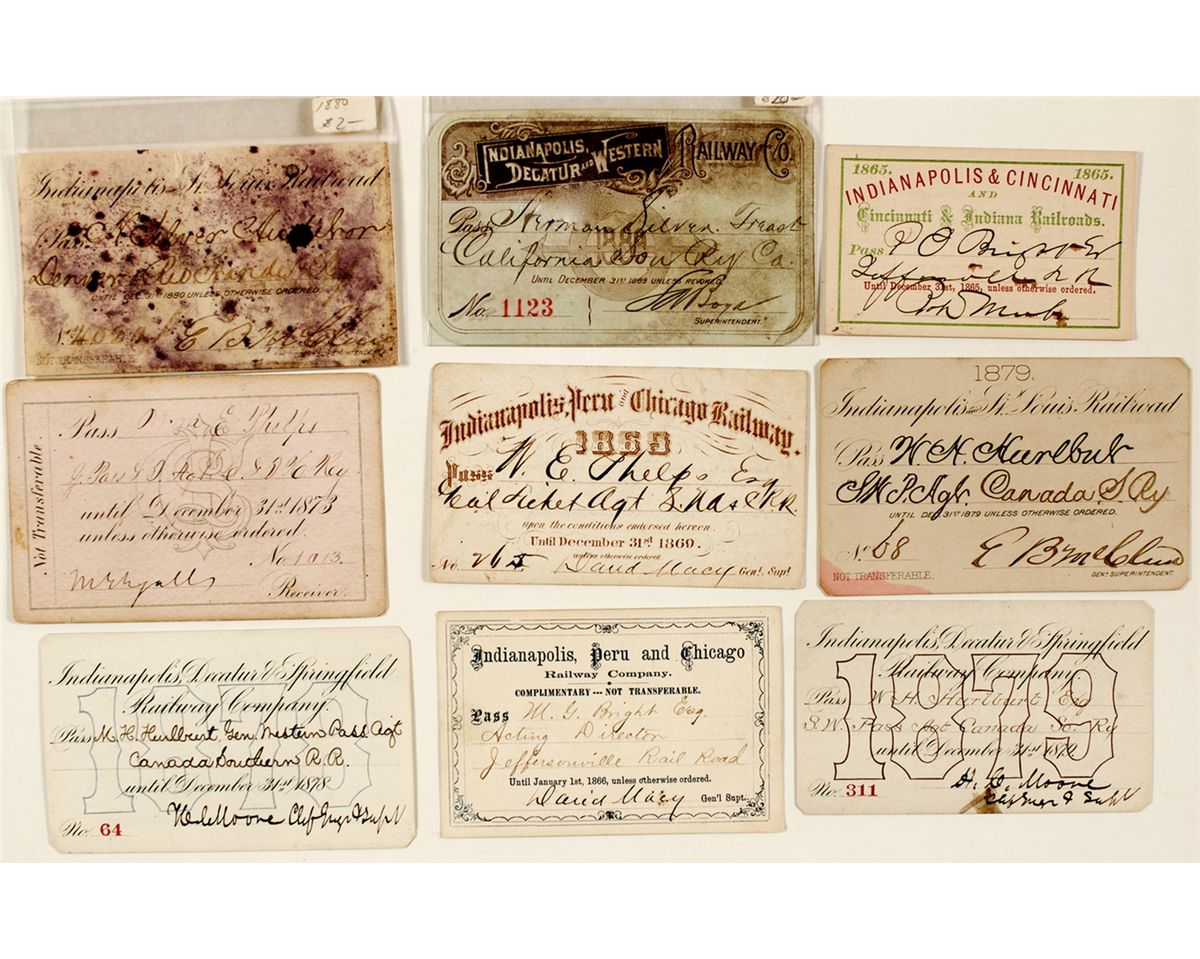 1880
$2-
Indianapolis & St. Louis Railroad
Pass H. Silver
Denver & Rio Grande
UNTIL DEC. 31ST 1880 UNLESS OTHERWISE ORDERED.
NOT TRANSFERABLE
INDIANAPOLIS,
DECATUR AND WESTERN
RAILWAY CO.
Pass Herman Silver. Treast
California Sou Ry Co.
UNTIL DECEMBER 31ST 1889 UNLESS REVOKED.
No. 1123
SUPERINTENDENT.
1865. 1865.
INDIANAPOLIS & CINCINNATI
AND
Cincinnati & Indiana Railroads.
Pass
Jeffersonville R R
Until December 31st, 1865, unless otherwise ordered.
Not Transferable
Pass Wm E Phelps
until December 31st 1873
unless otherwise ordered.
No 1013
Receiver.
Indianapolis, Peru and Chicago Railway.
1869
Pass W. E. Phelps Esq
Genl Ticket Agt
upon the conditions endorsed hereon.
Until December 31st 1869.
unless otherwise ordered
No. 265 David Macy Genl. Supt.
1879.
Indianapolis and St. Louis Railroad
Pass W. H. Hurlbut
S.W.P. Agt. Canada S. Ry
UNTIL DEC. 31ST 1879 UNLESS OTHERWISE ORDERED.
No 68
NOT TRANSFERABLE.
GENL SUPERINTENDENT.
Indianapolis, Decatur & Springfield
Railway Company.
1878
Pass M. H. Hurlburt Gen. Western Pass. Agt
Canada Southern R.R.
until December 31st 1878
No. 64
Indianapolis, Peru and Chicago
Railway Company.
COMPLIMENTARY --- NOT TRANSFERABLE.
Pass M. G. Bright Esq.
Acting Director
Jeffersonville Rail Road
Until January 1st, 1866, unless otherwise ordered.
David Macy Gen'l Supt.
Indianapolis, Decatur & Springfield
Railway Company.
1879
Pass W. H. Hurlburt Esq
S.W. Pass Agt Canada So. Ry
until December 31st 1879
No. 311 H. C. Moore